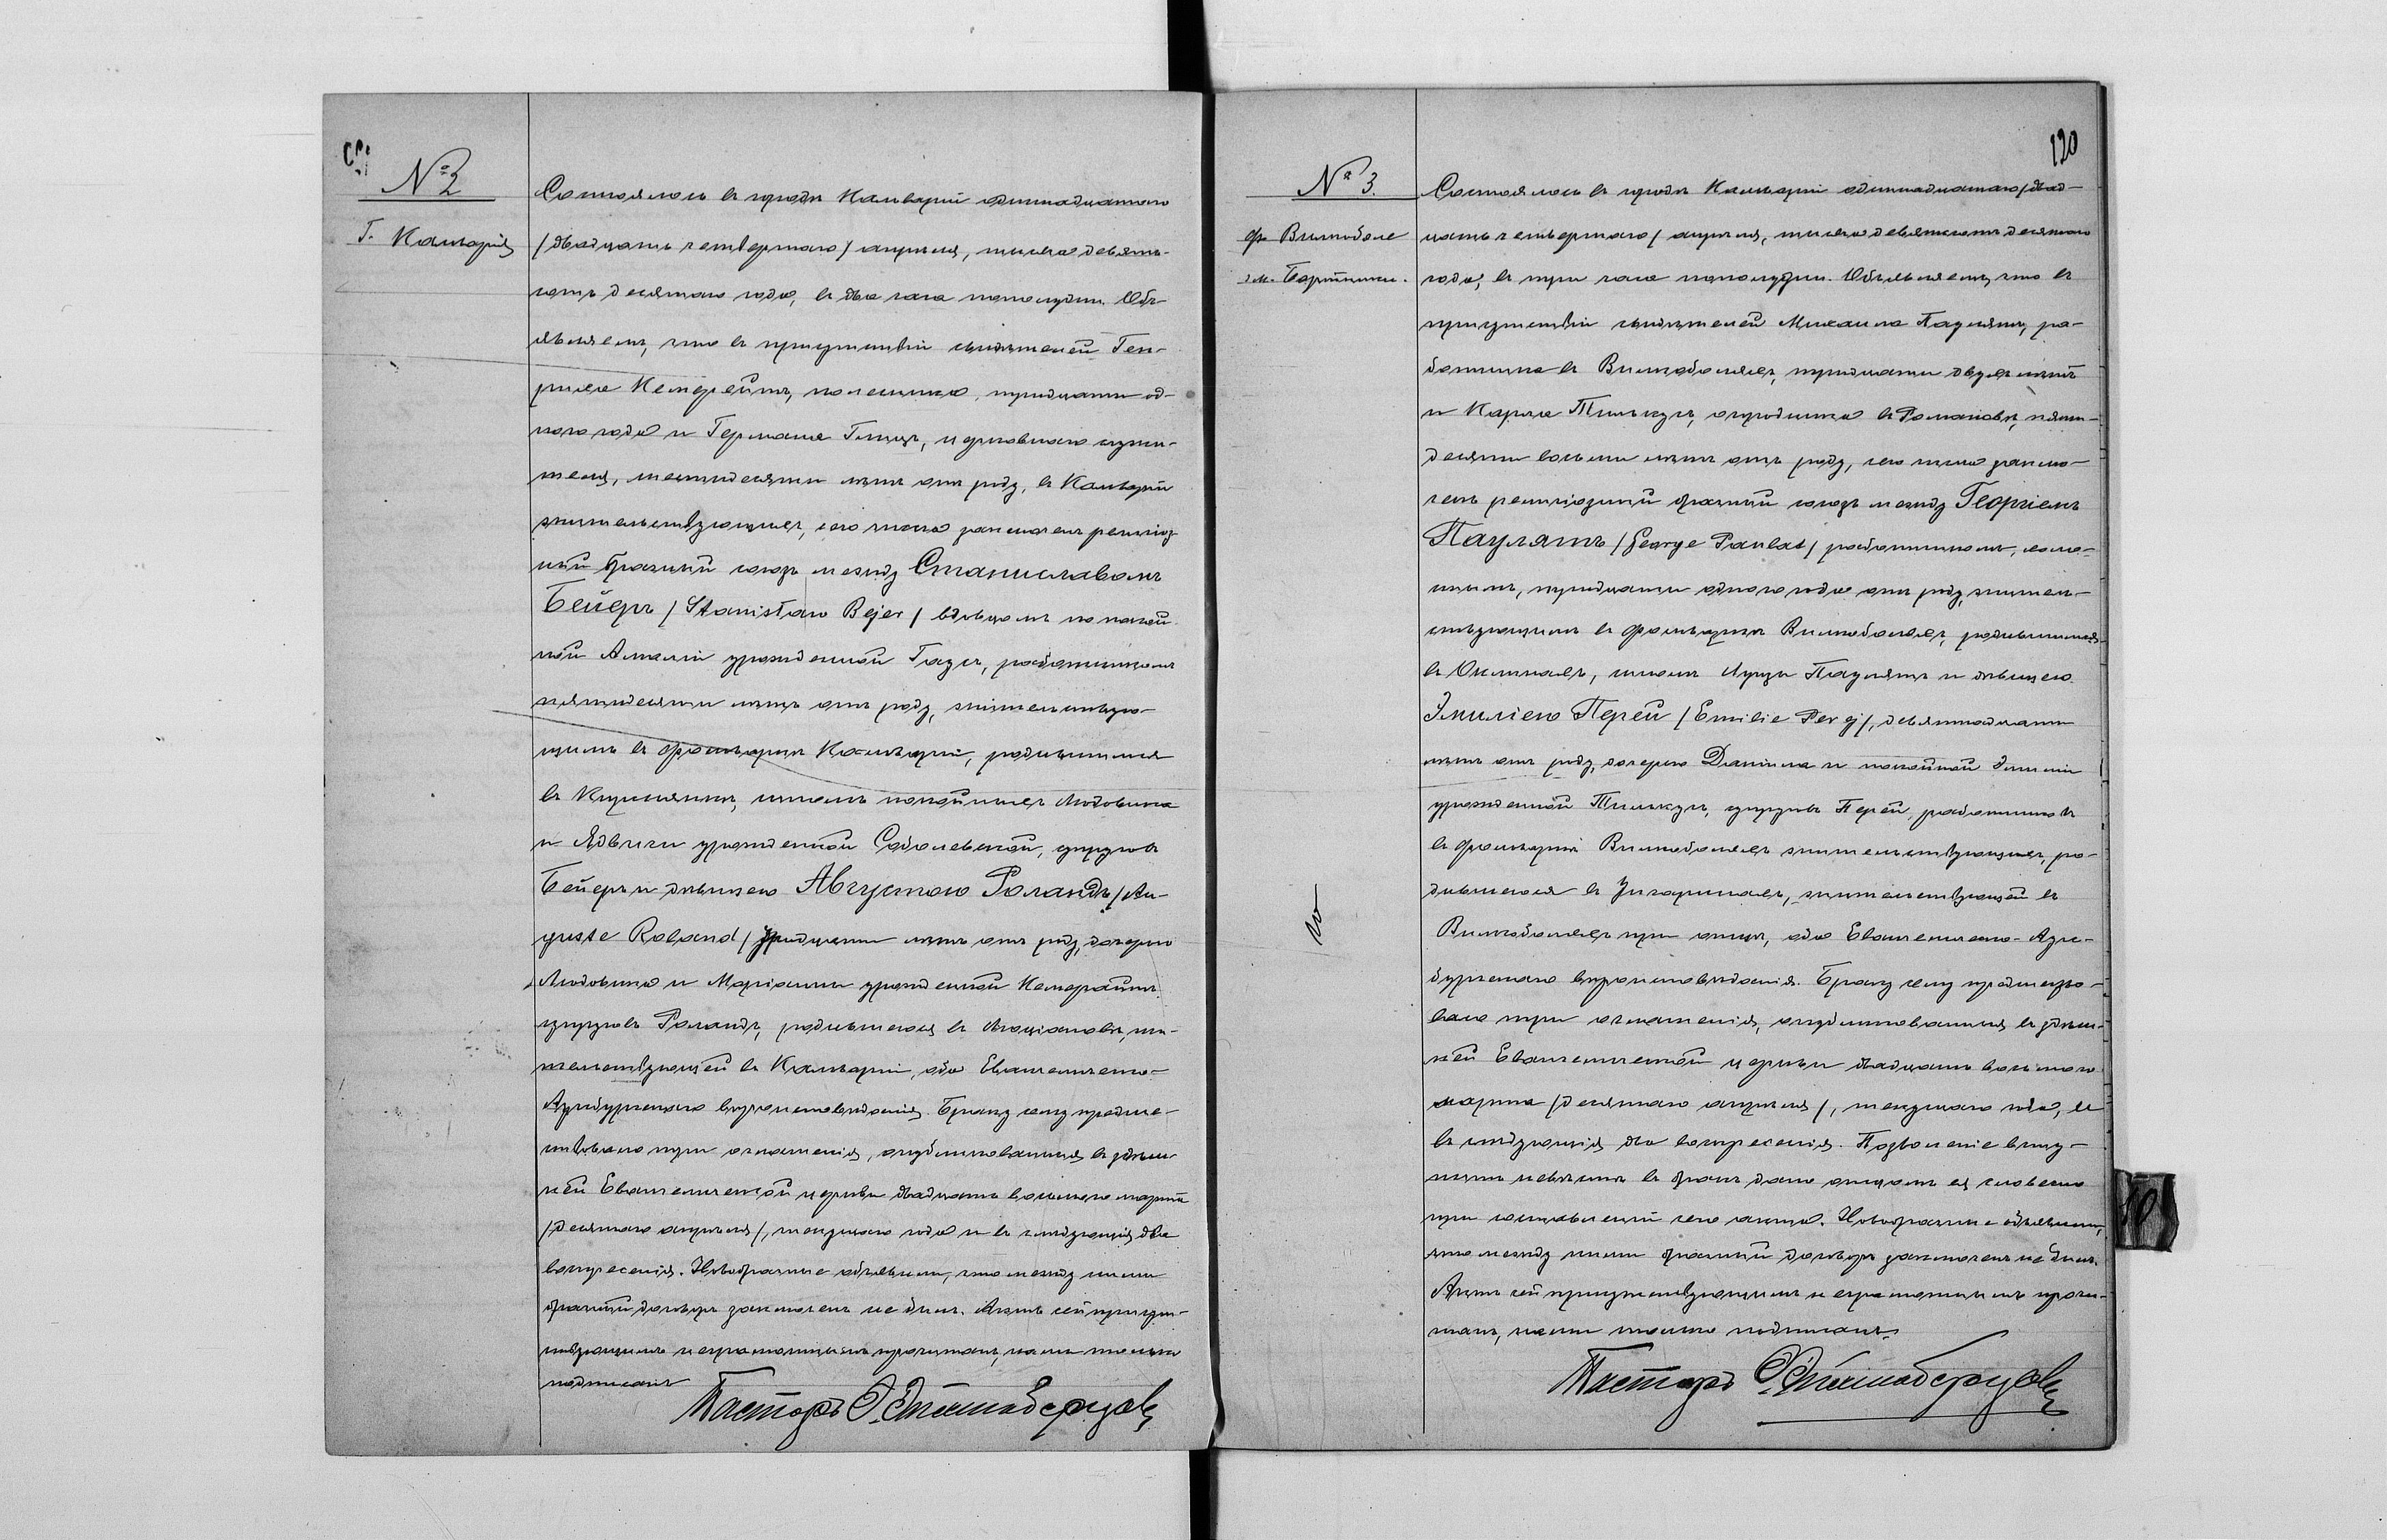 № 2
Г. Кальварія
Состоялось въ городѣ Кальваріи одиннадцатаго
/двадцать четвертаго/ апрѣля, тысяча девять-
сотъ десятаго года, въ два часа пополудни. Объ-
являемъ, что въ присутствіи свидѣтелей Ген-
риха Кемерейтъ, тридцати од-
ного года и Германа церковнаго служи-
теля, шестидесяти лѣтъ отъ роду, въ Кальваріи
жительствующихъ, сего числа заключенъ религіоз-
ный брачный союзъ между Станиславомъ
Бейеръ /Stanisław Bejer/ вдовцомъ по покой-
ной Амаліи урожденной работникомъ
пятидесяти лѣтъ отъ роду, жительствую-
щимъ въ фольваркѣ Кальваріи, родившимся
въ сыномъ покойныхъ Людовика
и Ядвиги урожденной Соболевской, супруговъ
Бейеръ и дѣвицею Августою Роландъ /Au-
guste Roland/ тридцати лѣтъ отъ роду, дочерью
Людовика и Маріанны урожденной
супруговъ Роландъ, родившеюся въ Люціановѣ, жи-
тельствующей въ Кальваріи, оба Евангелическо-
Аугсбургскаго вѣроисповѣданія. Браку сему предше-
ствовало три оглашенія, опубликованныя въ здѣш-
ней Евангелической церкви двадцать восьмого марта
/десятаго апрѣля/, текущаго года и въ слѣдующія два
воскресенія. Новобрачные объявили, что между ними
брачный договоръ заключенъ не былъ. Актъ сей присут-
ствующимъ неграмотнымъ прочитанъ, нами только
подписанъ
Пасторъ
120
№ 3.
ф. Вильноболе
гм.
Состоялось въ городѣ Кальваріи одиннадцатаго /двад-
цать четвертаго/ апрѣля, тысяча девятьсотъ десятаго
года, въ три часа пополудни. Объявляемъ, что въ
присутствіи свидѣтелей Михаила Паулятъ, ра-
ботника въ Вильноболяхъ, тридцати двухъ лѣтъ
и Карла огородника въ Романовѣ, пяти-
десяти восьми лѣтъ отъ роду, сего числа заклю-
ченъ религіозный брачный союзъ между Георгіемъ
Паулятъ /George Paulat/ работникомъ, холо-
стымъ, тридцати одного года отъ роду, житель-
ствующимъ въ фольваркѣ Вильноболяхъ, родившимся
въ сыномъ Паулятъ и дѣвицею
Эмиліею Перей /Emilie Perej/, девятнадцати
лѣтъ отъ роду, дочерью Даніила и покойной Эмиліи
урожденной супруговъ Перей, работниковъ
въ фольваркѣ Вильноболяхъ жительствующихъ, ро-
дившеюся въ жительствующей въ
Вильноболяхъ при отцѣ, оба Евангелическо-Аугс-
бургскаго вѣроисповѣданія. Браку сему предшество-
вало три оглашенія, опубликованныя въ здѣш-
ней Евангелической церкви двадцать восьмого
марта /десятаго апрѣля/, текущаго года, и
въ слѣдующія два воскресенія. Позволеніе всту-
пить невѣстѣ въ бракъ дано отцомъ ея словесно
при составленіи сего акта. Новобрачные объявили,
что между ними брачный договоръ заключенъ не былъ.
Актъ сей присутствующимъ неграмотнымъ прочи-
танъ, нами только подписанъ.
Пасторъ